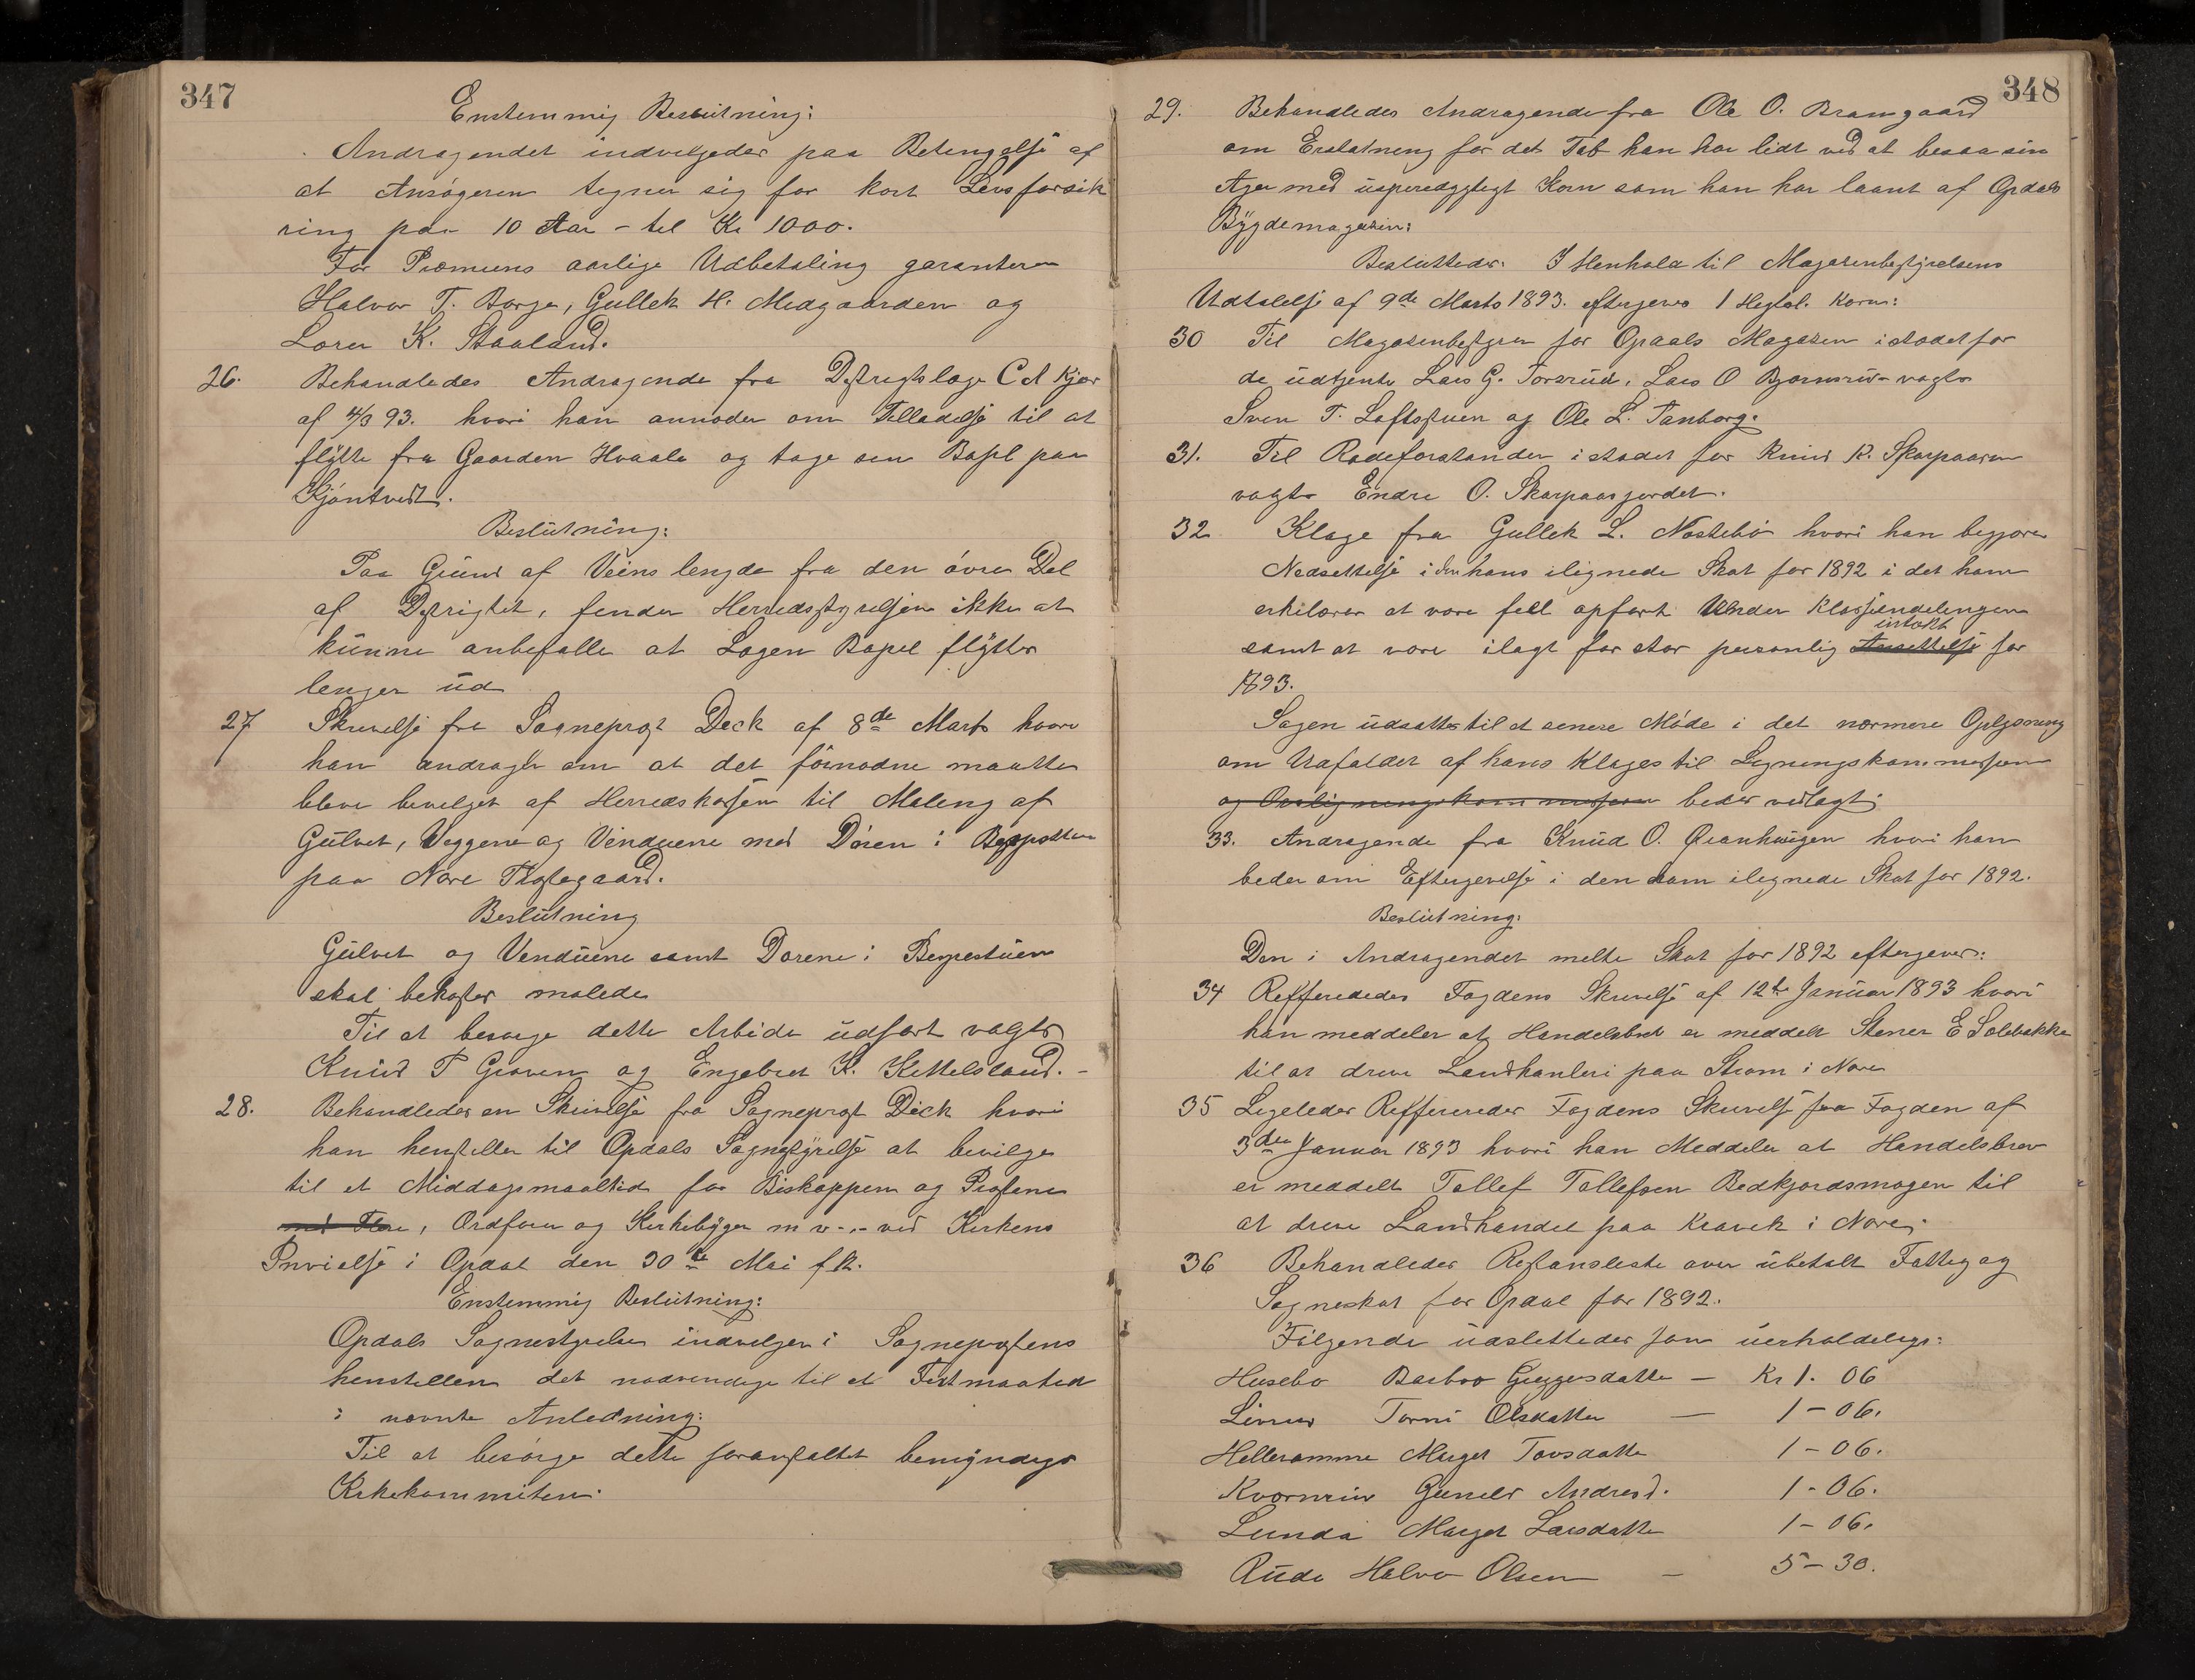 347
Enstemmig Beslutning:
Andragendet indvelgedes paa Betingelse af
at Ansøgeren tegner sig for kort Livsforsik
ring paa 10 Aar - til Kr 1000.
For Præmiens aarlige Udbetaling garanterer
Halvor T. Borge, Gullek H. Medgaarden og
Lorer K. Staaland.
26. Behandledes Andragende fra Destrigtslæge C A Kjær
af 4/3 93. hvori han anmoder om Telladelse til at
flytte fra Gaarden Hvaale og tage sin Bopel paa
Kjøntvedt.
Beslutning:
Paa Grund af Veins lengde fra den øvre Del
af Destrigtet, fender Herredsstyrelsen ikke at
kunne anbefalle at Lægen Bopel flytter
lenger ud
27 Skrivelse fra Sogneprest Deck af 8de Marts hvori
han andrager om at det fornødne maatte
bleve bevelget af Herredskassen til Maleng af
Gulvet, Veggene og Venduene med Døren i
paa Nore Prestegaard.
Beslutning
Gulvet og Venduene samt Dørene i Bespestuen
skal bekostes malede
Til at besørge dette Arbide udført valgtes
Knud T Groven og Engebret K. Kittelsland. -
28. Behandledes en Skrivelse fra Sogneprest Deck hvori
han henstiller til Opdals Sognestyrelse at bevilge
til et Middagsmaaltid for Biskoppen og Prestene
med Flere, Ordfører og Kirkebyger m v -.- ved Kirkens
Invielse i Opdal den 30te Mai f k.
Enstemmig Beslutning:
Opdals Sognestyrelse indvelger i Sogneprestens
henstillen det nødvendige til et Festmaated
i nævnte Anledning:
Til at besørge dette foranstaltet bemyndiges
Kirkekommiteen.
348
29. Behandledes Andragende fra Ole O. Bramgaard
om Erstatning for det Tab han har lidt ved at besaa sin
Ager med uspiredygtigt Korn som han har laant af Opdals
Bygdemagasin:
Besluttedes: I Henhold til Magasinbestyrelsens
Udtalelse af 9de Marts 1893. eftergives 1 Hegtol. Korn:
30 Til Magasinbestyrer for Opdals Magasen istedet for
de udtjente Lars G. Torsrud, Lars O Bjørnsrud - valgtes
Sven T. Loftstuen og Ole L. Tanborg.
31. Til Rodeforstander istedet for Knud K. Skarpaasen
valgtes Endre O. Skarpaasgjerdet.
32 Klage fra Gullek L. Nøstebø hvori han begjærer
Nedsettelse i den hans ilignede Skat for 1892 i det han
erklærer at være feil opført Under Klasseindelingen
intækt
samt at være ilagt for stor personlig Ansettelse for
1893.
Sagen udsattes til et senere Møde i det nærmere Oplysning
om Udfaldet af hans Klages til Legningskommessionen
og Overligningskommissionen bedes vedlagt;
33. Andragende fra Knud O. Øranhaugen hvori han
beder om Eftergivelse i den ham ilegnede Skat for 1892.
Beslutning:
Den i Andragendet melte Skat for 1892 eftergives:
34 Reffereredes Fogdens Skrivelse af 12te Januar 1893 hvori
han meddeler at Handelsbrev er meddelt Stener E Solebakke
til at dreve Landhanleri paa Strøm i Nore
35 Legeledes Reffereredes Fogdens Skrivelse fra Fogden af
3die Januar 1893 hvori han Meddeler at Handelsbrev
er meddelt Tollef Tollefsen Bedkjordsmogen til
at dreve Landhandel paa Kravek i Nore;
36 Behandledes Restansleste over ubetalt Fatteg og
Sogneskat for Opdal for 1892.
Følgende udslettedes som uerholdelige:
Husebø Barbro Gregersdatter - Kr 1. 06
Liverud Torni Olsdatter - 1 - 06.
Helleramme Marget Torsdatter 1 - 06.
Kvernrud Gunild Andresd. 1 - 06.
Lunda Marget Larsdatter 1 - 06.
Rude Halvor Olsen - 5 - 30.